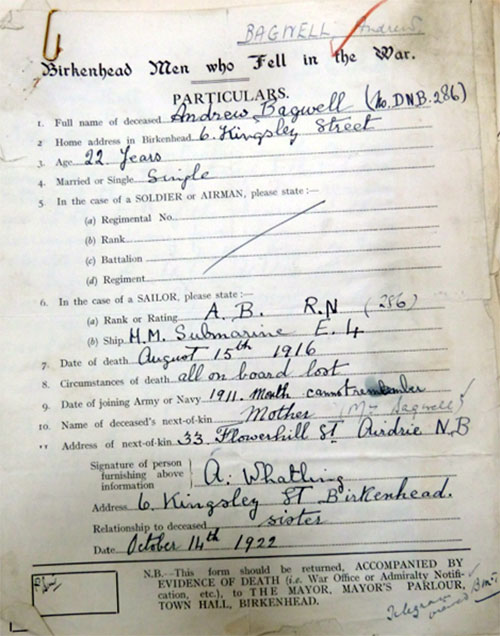 BAGWELL, Andrew.
Birkenhead Men who Fell in the War.
PARTICULARS.
1. Full name of deceased Andrew Bagwell (No. DNB. 286)
2 Home address in Birkenhead 6. Kingsley Street
3. Age 22 Years
4. Married or Single Single
5. In the case of a SOLDIER or AIRMAN, please state :—
(a) Regimental No.
(b) Rank
(c) Battalion
(d) Regiment
6. In the case of a SAILOR, please state :—
(a) Rank or Rating A. B. R.N (286)
(b) Ship H.M. Submarine E. 4
7. Date of death August 15th 1916
8. Circumstances of death all on board lost
9. Date of joining Army or Navy 1911. Month cannot remember
10. Name of deceased's next-of-kin Mother (Mrs Bagwell)
11 Address of next-of-kin 33 Flowerhill St Airdrie N.B
Signature of person
furnishing above
information
A. Whatling
Address 6. Kingsley St Birkenhead.
Relationship to deceased sister
Date October 14th 1922
N.B.—This form should be returned, ACCOMPANIED BY
EVIDENCE OF DEATH (i.e. War Office or Admiralty Notifi-
cation, etc.), to THE MAYOR, MAYOR'S PARLOUR,
TOWN HALL, BIRKENHEAD.
Telegram